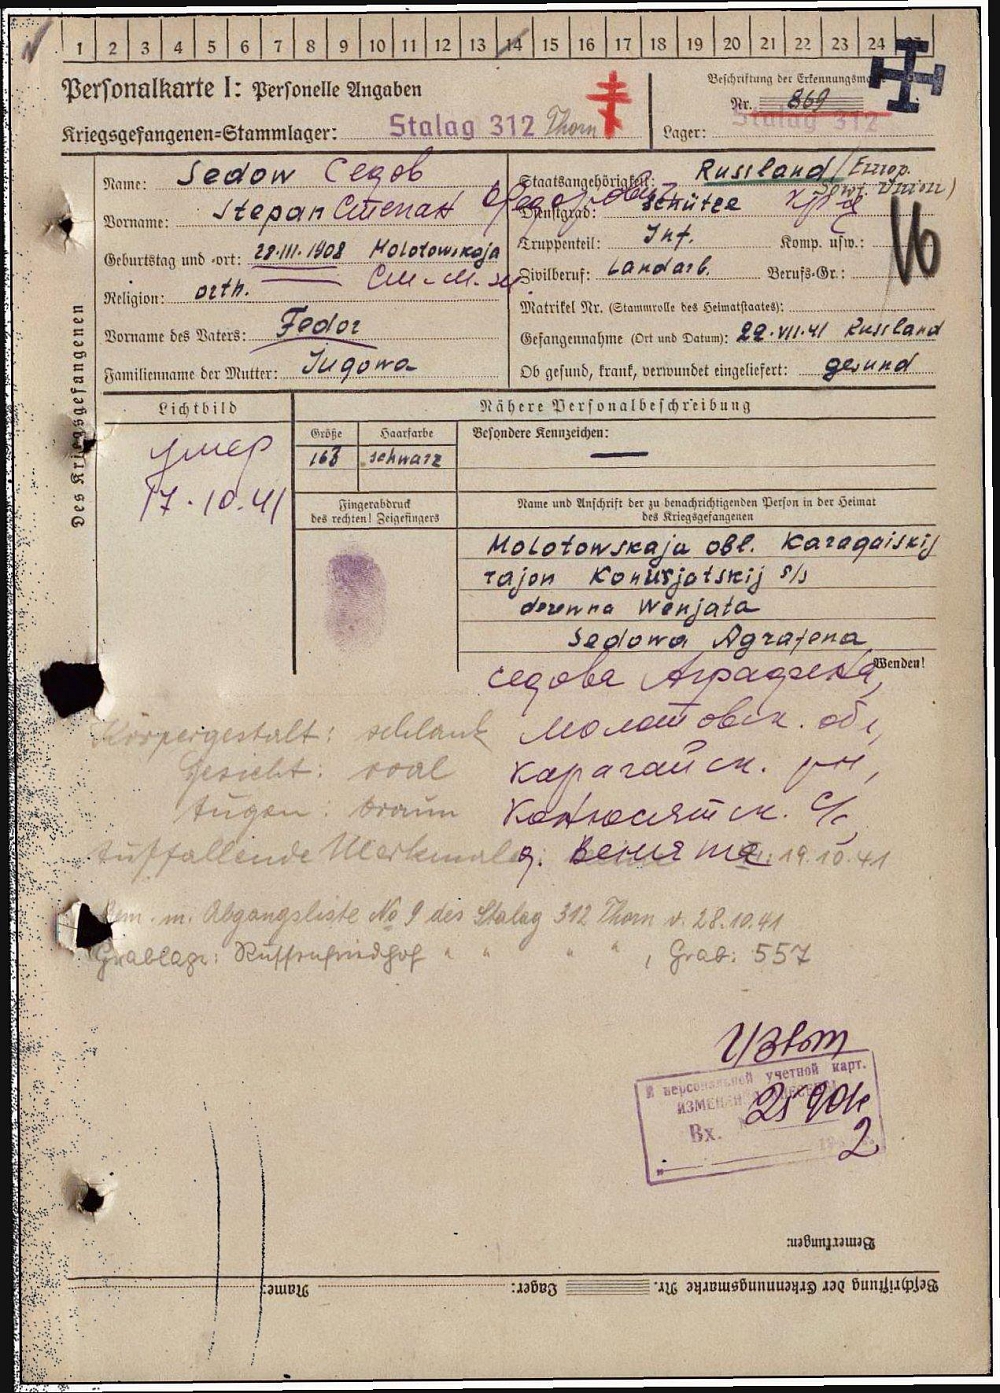 1 2 3 4 5 6 7 8 9 10 11 12 13 14 15 16 17 18 19 20 21 22 23 24 25
Personalkarte I: Personelle Angaben
Beschriftung der Erkennungsmarke
Nr. 869
Kriegsgefangenen-Stammlager: Stalag 312 Thorn
Lager: Stalag 312
Des Kriegsgefangenen
Name: Sedow Седов
Vorname: Stepan Степан Федорович
Geburtstag und -ort: 28.III.1908 Molotowskaja
Religion: orth.
Vorname des Vaters: Fedor
Familienname der Mutter: Jugowa
Staatsangehörigkeit: Russland / Europ. Sowj. Union)
Dienstgrad: Schütze
Truppenteil: Inf. Komp. usw.:
16
Zivilberuf: Landarb. Berufs-Gr.:
Matrikel Nr. (Stammrolle des Heimatstaates):
Gefangennahme (Ort und Datum): 22.VII.41 Russland
Ob gesund, krank, verwundet eingeliefert: gesund
Lichtbild
Nähere Personalbeschreibung
умер
17.10.41
Größe Haarfarbe Besondere Kennzeichen:
163 schwarz —
Fingerabdruck
des rechten! Zeigefingers
Name und Anschrift der zu benachrichtigenden Person in der Heimat
des Kriegsgefangenen
Molotowskaja obl. Karagaiskij
rajon Konusjatskij s/s
derewna Wenjata
Sedowa Agrafena
Wenden!
Седова Аграфена,
Молотовск. обл,
Карагайск. рн,
Конюсятск. С/с,
д. Венята
Körpergestalt: schlank
Gesicht: oval
Augen: braun
Auffallende Merkmale:
19.10.41
Gem. m. Abgangsliste No 9 des Stalag 312 Thorn v. 28.10.41
Grablage: Russenfriedhof " " " " , Grab: 557
В персональной учетной карт.
ИЗМЕНЕНИЯ ВНЕСЕНЫ
Вх. 2590
2
Bemerkungen:
Beschriftung der Erkennungsmarke Nr. Lager: Name: